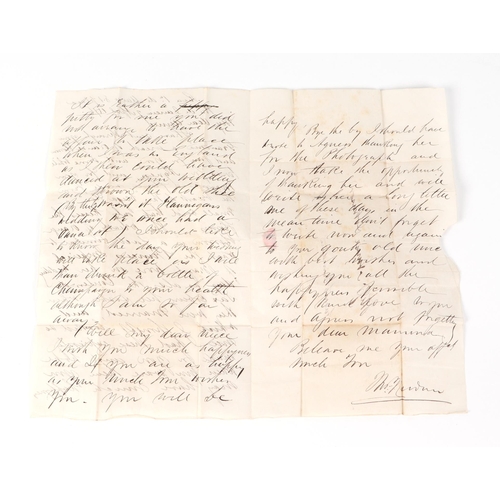 It is rather a
pity for me you did
not arrange to have the
affair to take place
when I was in England
as then I could have
danced at your wedding
and shown the old
at Flannigans
wedding we once had a
I should like
to know the day your wedding
will take place for I will
than drink a bottle of
Champagne to your health
although I am so far
away.
Well my dear niece
I wish you much happiness
and If you are as happy
as your Uncle Tom wishes
you - you will be
happy
Bye the by I should have
wrote to Agness thanking her
for the Photograph and
I now take the oppertunity
of thanking her and will
write her a long letter
one of these days in the
mean time don't forget
to write now and again
to your gouty old Uncle
with best wishes and
wishing you all the
happyness possible
with much love to you
and Agness not forgetting
your dear Mamma
Believe me your affect
Uncle Tom
Tho